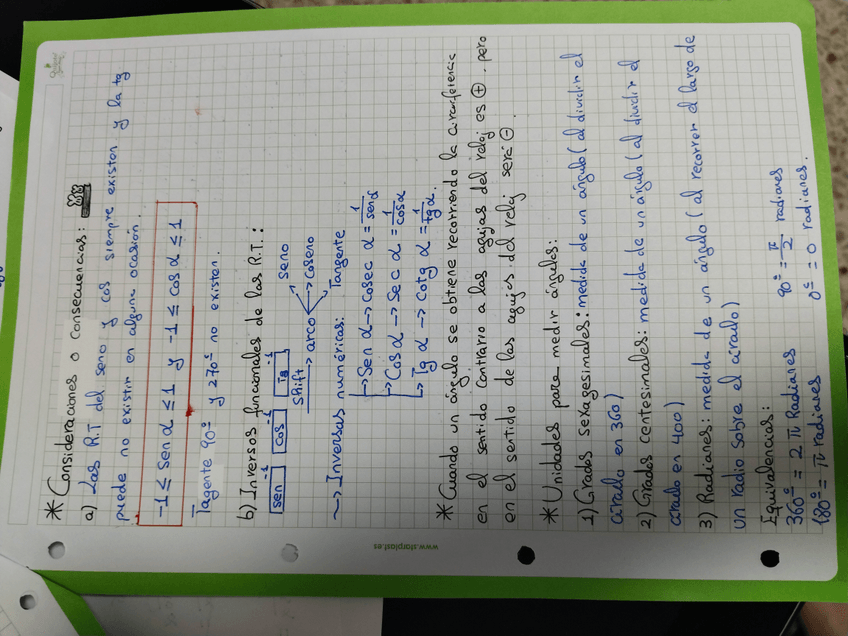 * Consideraciones o Consecuencias:
a) Las R.T del seno y cos siempre existen y la tg
puede no existir en alguna ocasión.
-1 ≤ sen α ≤ 1 y -1 ≤ cos α ≤ 1
Tagente 90º y 270º no existen.
b) Inversos funcionales de las R.T.:
sen⁻¹ cos⁻¹ Tg⁻¹
Shift → arco → seno
→ coseno
Tangente
~> Inversas numéricas:
↳ Sen α → Cosec α = 1/sen α
↳ Cos α → Sec α = 1/cos α
↳ Tg α → Cotg α = 1/tg α.
* Cuando un ángulo se obtiene recorriendo la circunferencia
en el sentido contrario a las agujas del reloj es ⊕. pero
en el sentido de las agujas del reloj será ⊖.
* Unidades para medir ángulos:
1) Grados sexagesimales: medida de un ángulo (al dividir el
círculo en 360)
2) Grados centesimales: medida de un ángulo (al dividir el
círculo en 400)
3) Radianes: medida de un ángulo (al recorrer el largo de
un radio sobre el círculo)
Equivalencias:
360º = 2 π Radianes 90º = π/2 radianes
180º = π radianes 0º = 0 radianes.
www.starplast.es